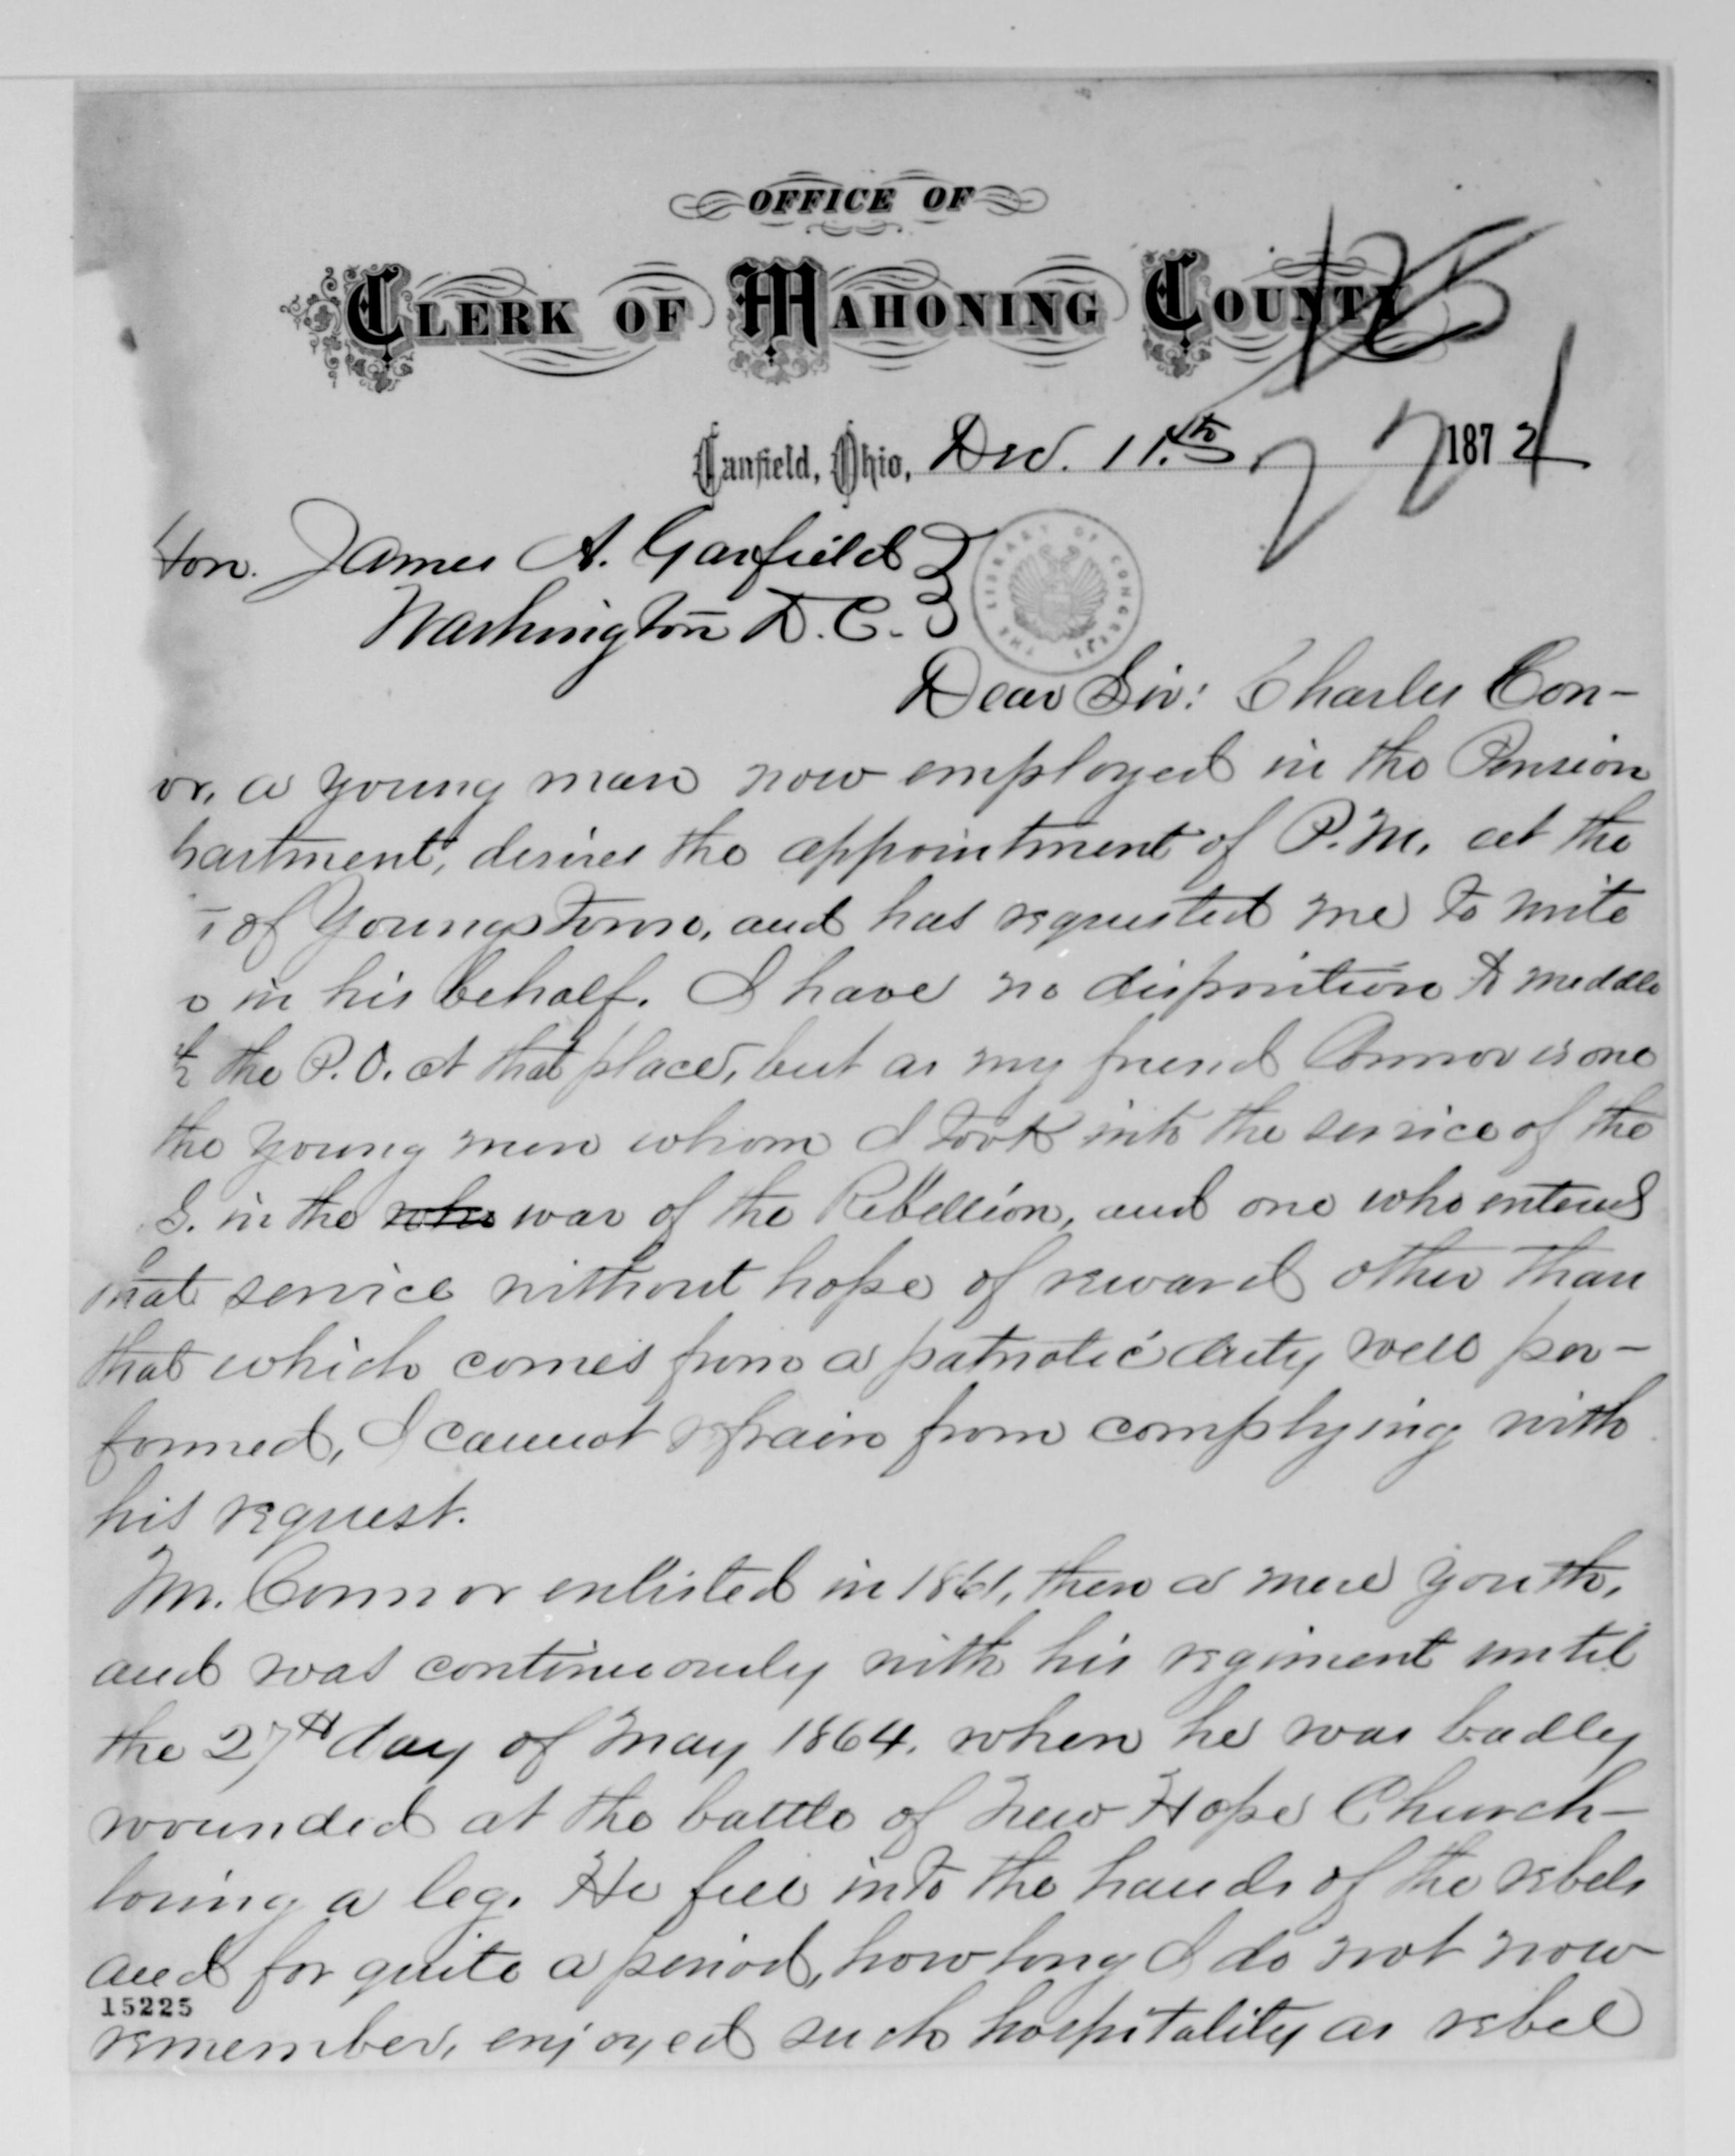 OFFICE OF
CLERK OF MAHONING COUNTY
Canfield, Ohio, Dec. 11.th 1872
Hon. James A. Garfield
Washington D.C.
THE LIBRARY OF CONGRESS
Dear Sir: Charles Con-
or, a young man now employed in the Pension
partment, desires the appointment of P.M. at the
of Youngstown, and has requested me to write
in his behalf. I have no disposition to meddle
the P.O. at that place, but as my friend Connor is one
the young men whom I took into the service of the
S. in the war of the Rebellion, and one who entered
that service without hope of reward other than
that which comes from a patriotic duty well per-
formed, I cannot refrain from complying with
his request.
Mr. Connor enlisted in 1861, then a mere youth,
and was continuously with his regiment until
the 27th day of May 1864. when he was badly
wounded at the battle of New Hope Church-
losing a leg. He fell into the hands of the rebels
and for quite a period, how long I do not now
15225
remember, enjoyed such hospitality as rebel